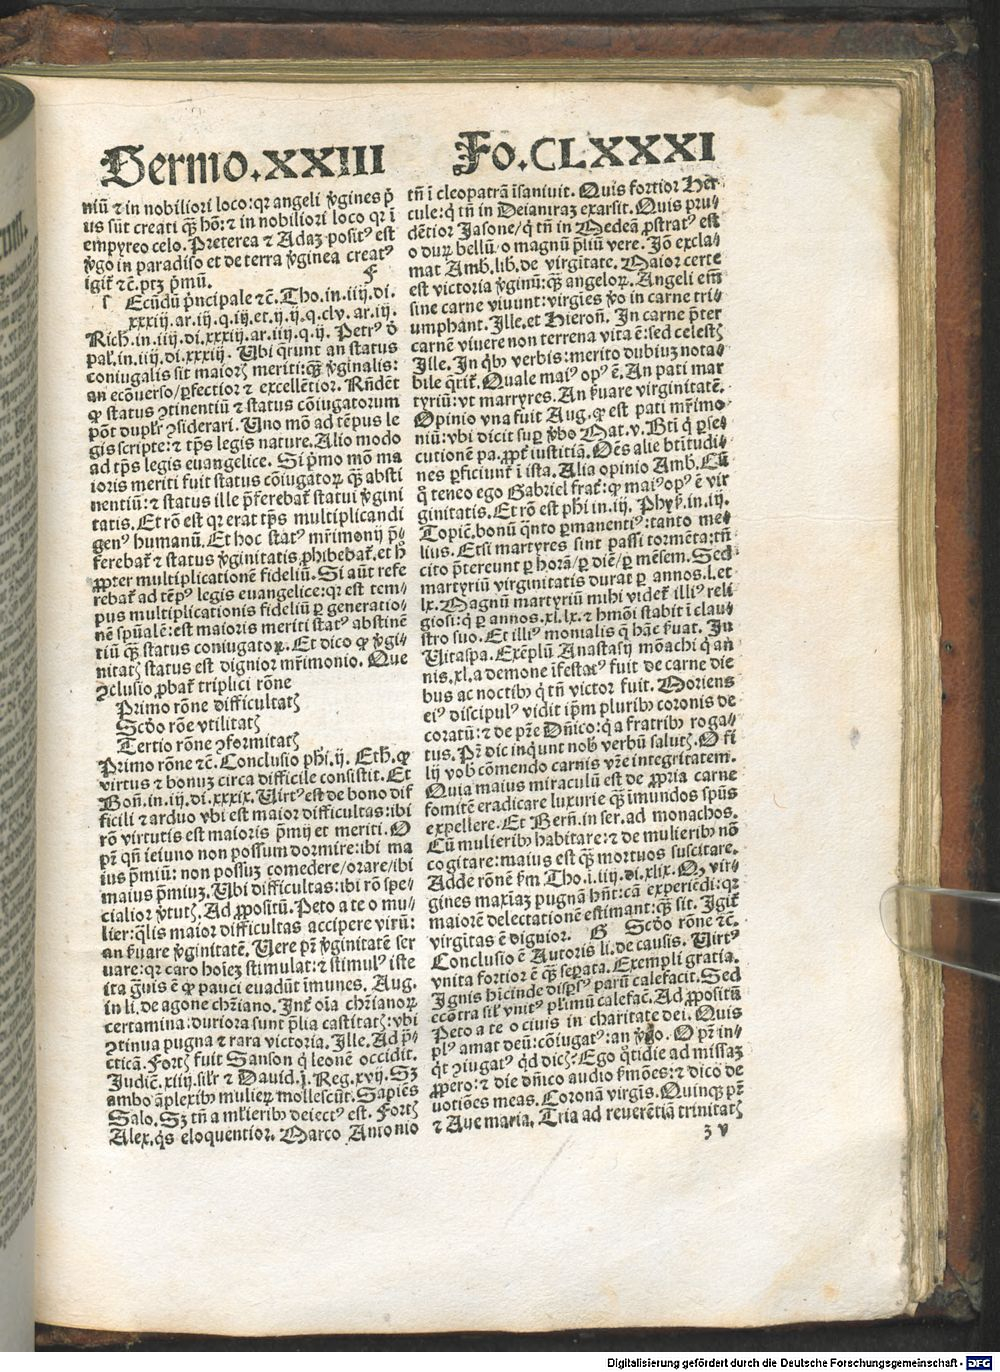 Sermo.XXIII Fo.CLXXXI
niū ⁊ in nobiliori loco: qꝛ angeli v̾gines p̄
us sūt creati qȝ hō: ⁊ in nobiliori loco qꝛ ī
empyreo celo. Preterea ⁊ Adaȝ positꝰ est
v̾go in paradiso et de terra v̾ginea creatꝰ
igit̄ ⁊c̄. ptȝ p̄mū. F
ſ Ecūdū p̄ncipale ⁊c̄. Tho. in. iiij. di.
xxxiij. ar. iij. q. iij. et. ij. ij. q. clv. ar. iij.
Rich. in. iiij. di. xxxiij. ar. iij. q. ij. Petrꝰ ď
pal̄. in. iiij. di. xxxiij. Ubi q̄runt an status
coniugalis sit maioris meriti: qȝ v̾ginalis:
an ecōuerso/ ꝑfectior ⁊ excellētior. Rn̄dēt
ꝙ status ꝯtinentiū ⁊ status cōiugatorum
pōt dupl̄r ꝯsiderari. Uno mō ad tēpus le
gis scripte: ⁊ tp̄s legis nature. Alio modo
ad tp̄s legis euangelice. Si p̄mo mō ma
ioris meriti fuit status cōiugatoꝝ qȝ absti
nentiū: ⁊ status ille p̄ferebat̄ statui v̾gini
tatis. Et rō est qꝛ erat tp̄s multiplicandi
genꝰ humanū. Et hoc statꝰ mr̄imonij p̄-
ferebat̄ ⁊ status v̾ginitatis ꝓhibebat̄. et h̄
ꝓpter multiplicationē fideliū. Si aūt refe
rebat̄ ad tēpꝰ legis euangelice: qꝛ est tem-
pus multiplicationis fideliū ꝑ generatio-
nē spūalē: est maioris meriti statꝰ abstinē
tiū qȝ status coniugatoꝝ. Et dico ꝙ v̾gi-
nitatis status est dignior mr̄imonio. Que
ꝯclusio ꝓbat̄ triplici rōne
Primo rōne difficultatis
Scd̄o rōne vtilitatis
Tertio rōne ꝯformitatis
Primo rōne ⁊c̄. Conclusio ph̄i. ij. Eth. ꝙ
virtus ⁊ bonuȝ circa difficile consistit. Et
Bon̄. in. iij. di. xxxix. Uirtꝰ est de bono dif
ficili ⁊ arduo vbi est maior difficultas: ibi
rō virtutis est maioris p̄mij et meriti. O
pr̄ qn̄ ieiuno non possum dormire: ibi ma
ius p̄miū: non possuȝ comedere/ orare/ ibi
maius p̄miuȝ. Ubi difficultas: ibi rō spe-
cialior v̾tutis. Ad ꝓpositū. Peto a te o mu-
lier: q̄lis maior difficultas accipere virū:
an ẜuare v̾ginitatē. Uere pr̄ v̾ginitatē ser
uare: qꝛ caro hoīeȝ stimulat: ⁊ stimulꝰ iste
ita gͣuis ē ꝙ pauci euadūt īmunes. Aug.
in li. de agone chr̄iano. Int̄ oīa chr̄ianoꝝ
certamina: duriora sunt p̄lia castitatis: vbi
ꝯtinua pugna ⁊ rara victoria. Ille. Ad p̄-
cticā. Fortis fuit Sanson q̄ leonē occidit.
Judic̄. xiiij. sil̄r ⁊ Dauid. j. Reg. xvij. Sȝ
ambo āplexibꝰ mulieꝝ mollescūt. Sapiēs
Salo. Sȝ tn̄ a ml̄ieribꝰ deiectꝰ est. Fortis
Alex. q̄s eloquentior. Marco Antonio
tn̄ ī cleopatrā īsaniuit. Quis fortior Her
cule: q̄ tn̄ in Deianiraȝ exarsit. Quis pru-
dētior Jasone/ q̄ tn̄ in Medeā ꝓstratꝰ est
o duꝝ bellū o magnū p̄liū vere. Jō excla-
mat Amb. lib. de virḡitate. Maior certe
est victoria v̾ginū: qȝ angeloꝝ. Angeli em̄
sine carne viuunt: virgīes v̾o in carne tri-
umphant. Ille. et Hieron̄. In carne p̄ter
carnē viuere non terrena vita ē: sed celestis
Ille. In q̄bꝰ verbis: merito dubiuȝ nota-
bile q̄rit̄. Quale maiꝰ opꝰ ē. An pati mar
tyriū: vt martyres. An ẜuare virginitatē.
Opinio vna fuit Aug. ꝙ est pati mr̄imo
niū: vbi dicit suꝑ v̾bo Mat. v. Bt̄i q̄ ꝑse-
cutionē pa. ꝓpt̄ iustitiā. Oēs alie bt̄itudi-
nes ꝑficiunt̄ ī ista. Alia opinio Amb. Cū
q̊ teneo ego Gabriel frat̄: ꝙ maiꝰ opꝰ ē vir
ginitatis. Et rō est ph̄i in. iij. in. iij.
Topic̄. bonū q̄nto ꝑmanentiꝰ: tanto me-
lius. Etsi martyres sint passi tormēta: tn̄
cito p̄tereunt ꝑ horā/ ꝑ diē/ ꝑ mēsem. Sed
martyriū virginitatis durat ꝑ annos. l. et
lx. Magnū martyriū mihi videt̄ illiꝰ reli
giosi: q̄ ꝑ annos. xl. lx. ⁊ hmōi stabit ī clau
stro suo. Et illiꝰ monialis q̄ hāc ẜuat. In
Uitaspa. Exēplū Anastasij mōachi q̄ an
nis. xl. a demone īfestatꝰ fuit de carne die
bus ac noctibꝰ q̄ tn̄ victor fuit. Moriens
eiꝰ discipulꝰ vidit ip̄m pluribꝰ coronis de
coratū: ⁊ de pr̄e Dn̄ico: q̄ a fratribꝰ roga-
tus. Pr̄ dic inq̄unt nobꝭ verbū salutis. O fi
lij vobꝭ cōmendo carnis vr̄e integritatem.
Quia maius miraculū est de ꝓpria carne
fomitē eradicare luxurie qȝ īmundos spūs
expellere. Et Bern̄. in ser. ad monachos.
Cū mulieribꝰ habitare: ⁊ de mulieribꝰ nō
cogitare: maius est qȝ mortuos suscitare.
Adde rōnē ẜm Tho. i. iiij. di. xlix. Qꝫ vir-
gines maxīaȝ pugnā hn̄t: cā experiēdi: qꝛ
maiorē delectationē estimant: qȝ sit. Igit̄
virḡitas ē dignior. G Scd̄o rōne ⁊c̄.
Conclusio ē Autoris li. de causis. Uirtꝰ
vnita fortior ē qȝ seꝑata. Exempli gratia.
Ignis hincinde disꝑsꝰ parū calefacit. Sed
ecōtra sil̄ vnitꝰ pl̄imū calefac̄. Ad ꝓpositū
Peto a te o ciuis in charitate dei. Quis
plꝰ amat deū: cōiugatꝰ: an v̾go. O pr̄ in-
q̄t ꝯiugatꝰ qd̄ dicis? Ego q̊tidie ad missaȝ
ꝓpero: ⁊ die dn̄ico audio ẜmōes: ⁊ dico de
uotiōes meas. Coronā virgīs. Quinqꝫ pr̄
⁊ Aue maria. Tria ad reuerētiā trinitatis
ȝ v
Digitalisierung gefördert durch die Deutsche Forschungsgemeinschaft - DFG